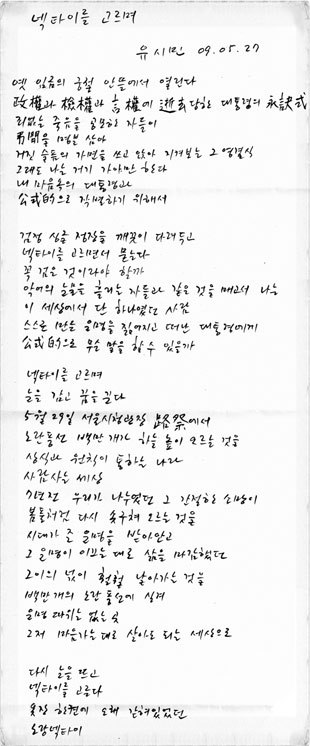 넥타이를 고르며
유시민 09.05.27
옛 임금의 궁궐 안뜰에서 열린다
政權과 檢權과 言權에 逝去당한 대통령의 永訣式
죄없는 죽음을 공모한 자들이
弔問을 명분 삼아
거짓 슬픔의 가면을 쓰고 앉아 지켜보는 그 영결식
그래도 나는 거기 가야만 한다
내 마음속의 대통령과
公式的으로 작별하기 위해서
검정 싱글 정장을 깨끗이 다려두고
넥타이를 고르면서 묻는다
꼭 검은 것이라야 할까
악어의 눈물을 흘리는 자들과 같은 것을 매고서 나는
이 세상에서 단 하나였던 사람
스스로 만든 운명을 짊어지고 떠난 대통령에게
公式的으로 무슨 말을 할 수 있을까
넥타이를 고르며
눈을 감고 꿈을 꾼다
5월 29일 서울시청광장 路祭에서
노란풍선 백만개가 하늘 높이 오르는 것을
상식과 원칙이 통하는 나라
사람사는 세상
7년전 우리가 나누었던 그 간절한 소망이
봄풀처럼 다시 솟구쳐 오르는 것을
시대가 준 운명을 받아안고
그 운명이 이끄는 대로 삶을 마감했던
그이의 넋이 훨훨 날아가는 것을
백만개의 노란 풍선에 실려
운명 따위는 없는 곳
그저 마음가는대로 살아도 되는 세상으로
다시 눈을 뜨고
넥타이를 고른다
옷장 한켠에 오래 갇혀있었던
노랑넥타이